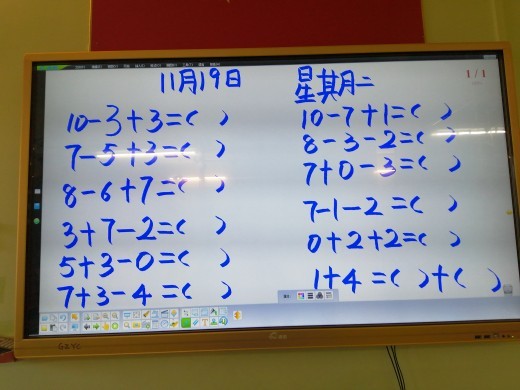 11月19日 星期二
1/1
10-3+3=( )
7-5+3=( )
8-6+7=( )
3+7-2=( )
5+3-0=( )
7+3-4=( )
10-7+1=( )
8-3-2=( )
7+0-3=( )
7-1-2=( )
0+2+2=( )
1+4=( )+( )